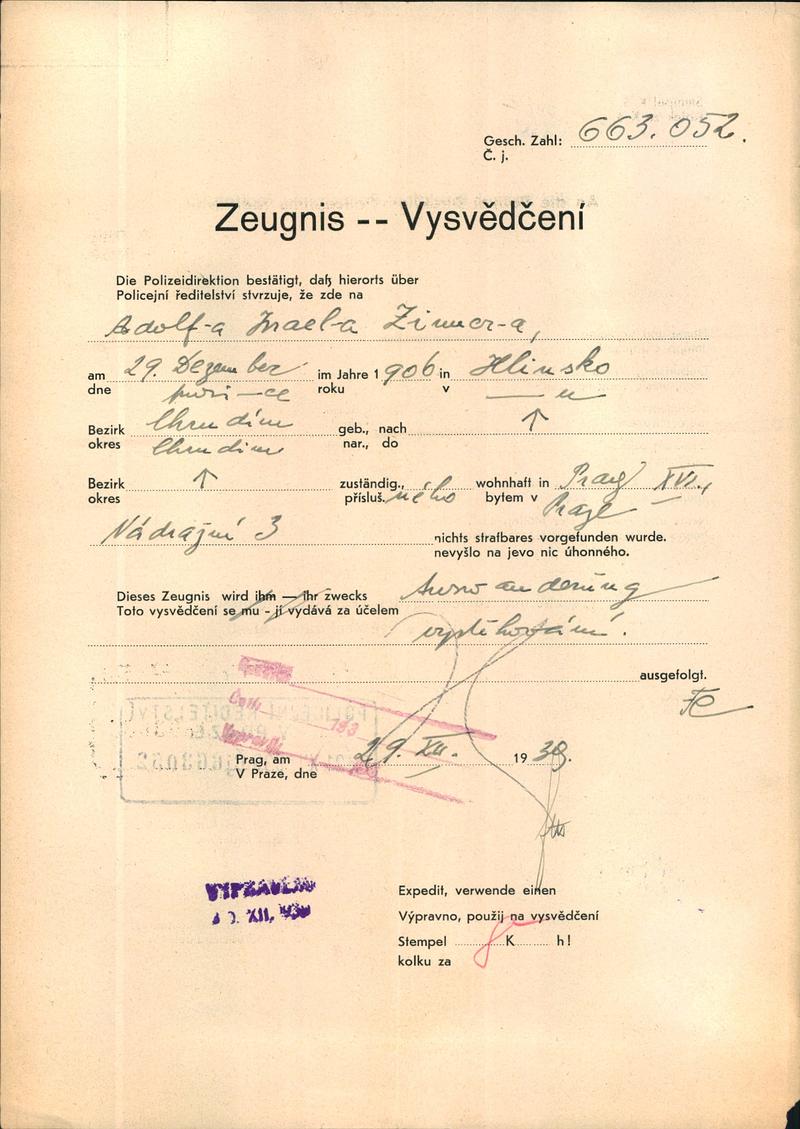 Gesch. Zahl: 663.052.
Č. j.
Zeugnis -- Vysvědčení
Die Polizeidirektion bestätigt, daß hierorts über
Policejní ředitelství stvrzuje, že zde na
Adolf-a Israel-a Zimmer-a,
am 29. Dezember im Jahre 1906 in Hlinsko
dne prosi-ce roku v — u
Bezirk Chrudim geb., nach ↑
okres Chrudim nar., do
Bezirk ↑ zuständig., wohnhaft in Prag XVI.,
okres přísluš.ného bytem v Praze —
Nádražní 3 nichts strafbares vorgefunden wurde.
nevyšlo na jevo nic úhonného.
Dieses Zeugnis wird ihm — ihr zwecks Auswanderung
Toto vysvědčení se mu - jí vydává za účelem
vystěhování.
ausgefolgt.
POLICEJNÍ ŘEDITELSTVÍ
V PRAZE
663052
Prag, am 29. XII. 1939.
V Praze, dne
VYPRAVENO
XII. 1939
Expedit, verwende einen
Výpravno, použij na vysvědčení
Stempel K h!
kolku za